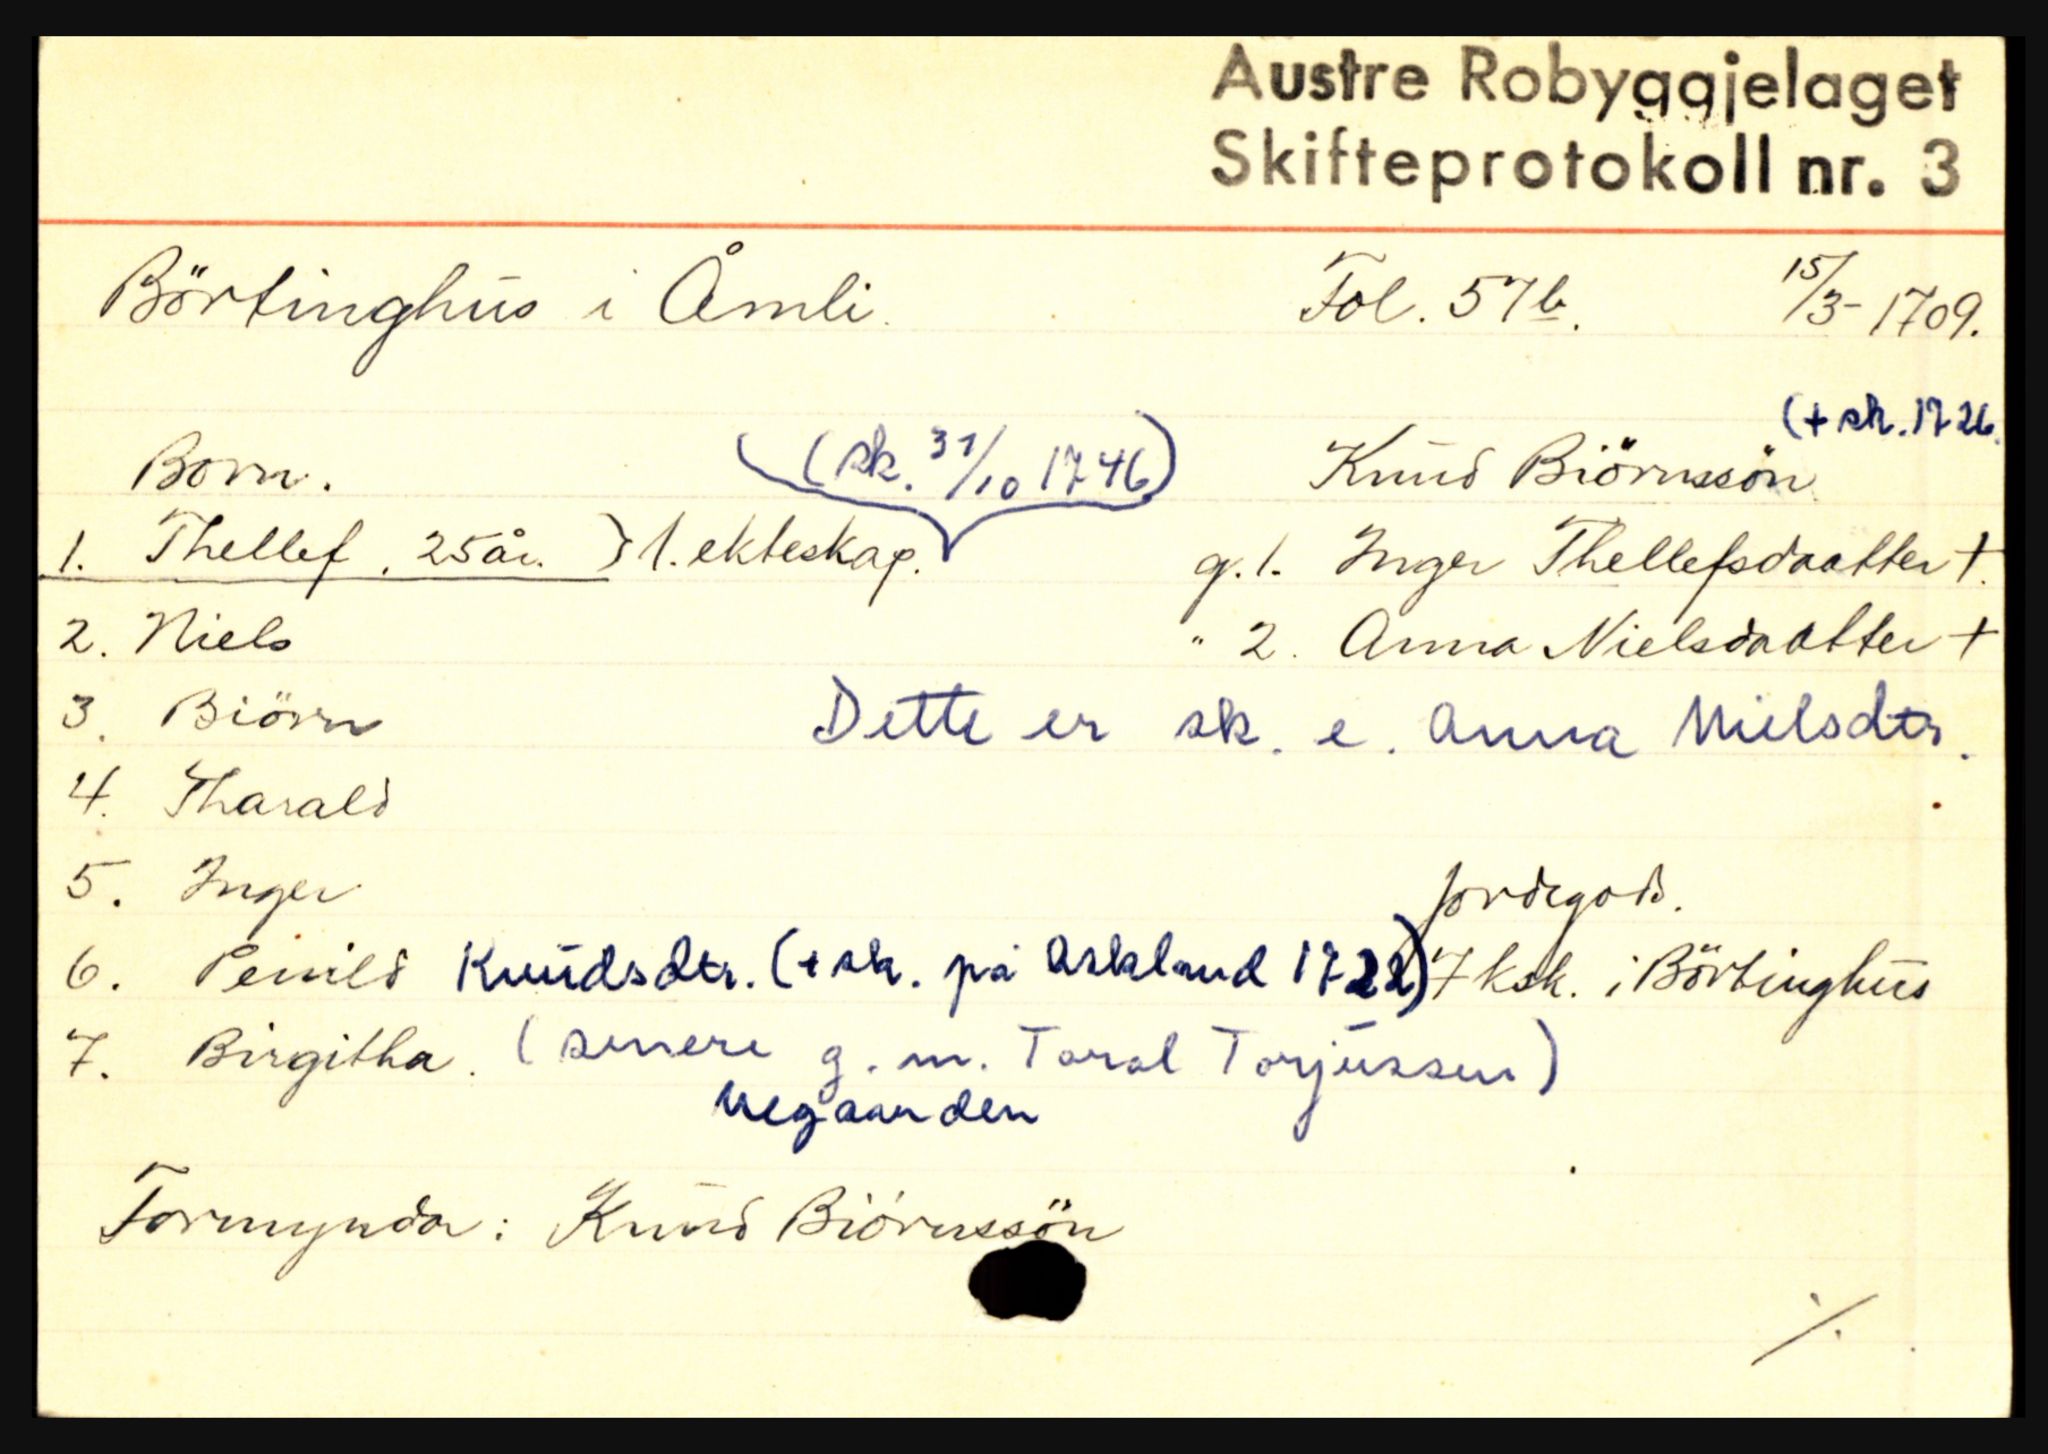 Austre Robyggjelaget
Skifteprotokoll nr. 3
Börtinghus i Åmli. Fol. 57b. 15/3-1709.
(+ sk. 1726.
Born. (sk. 31/10 1746) Knud Biörnssön
1. Thellef, 25 år. } 1. ekteskap. g. 1. Inger Thellefsdaatter +.
2. Niels " 2. Anna Nielsdaatter +
3. Biörn Dette er sk. e. Anna Nielsdtr.
4. Tharald
5. Inger Jordegods.
6. Pernild Knudsdtr. (+ sk. på Askland 1722) 7 ksk. i Börtinghus
7. Birgitha. (senere g. m. Taral Torjussen)
Negaarden
Formyndar: Knud Biörnssön